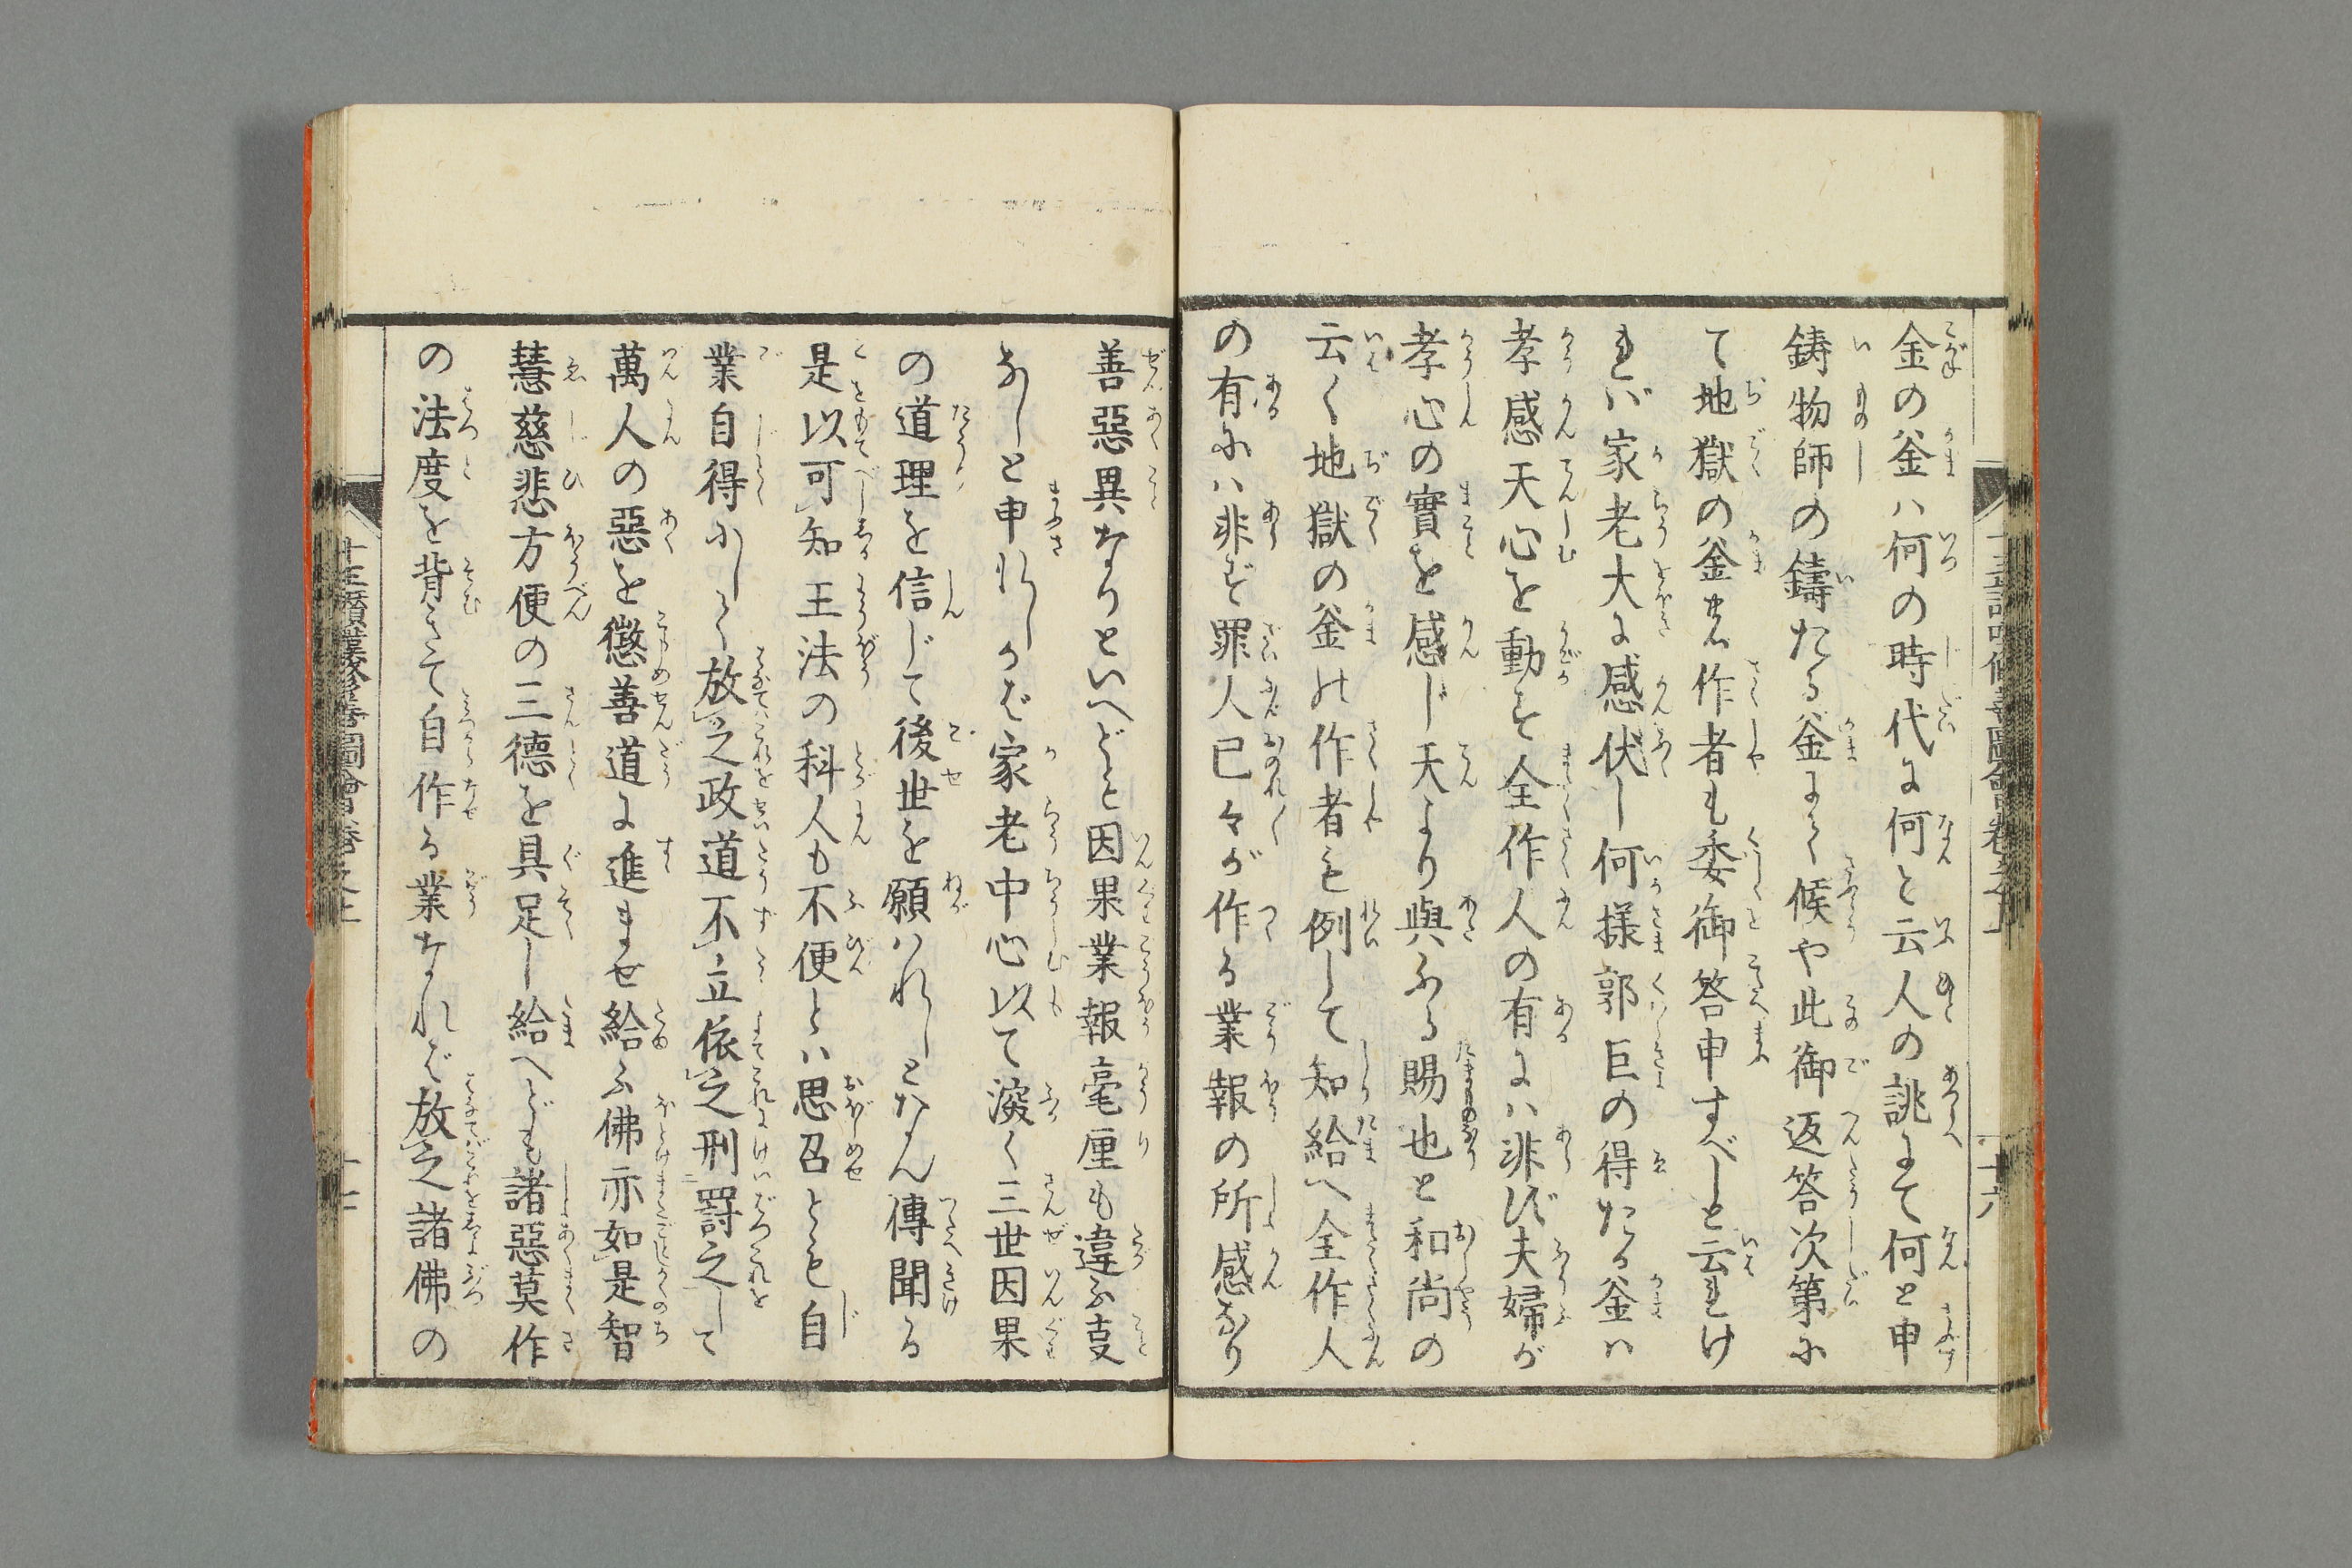 金の釜ハ何の時代に何と云人の誂にて何と申
鋳物師の鑄たる釜にて候や此御返答次第に
て地獄の釜の作者も委御答申すべしと云れけ
れバ家老大に感伏し何様郭巨の得たる釜ハ
孝感天心を動す全作人の有にハ非ず夫婦が
孝心の實を感じ天より與ふる賜也と和尚の
云く地獄の釜の作者も例して知給へ全作人
の有にハ非ず罪人已々が作る業報の所感なり
善惡異なりといへども因果業報毫厘も違ふ叓
なしと申れしかば家老中心以て深く三世因果
の道理を信じて後世を願ハれしとなん傳聞る
是以可知王法の科人も不便とハ思召とも自
業自得にして放之政道不立依之刑罰之して
萬人の惡を懲善道に進ませ給ふ佛亦如是智
慧慈悲方便の三德を具足し給へども諸惡莫作
の法度を背きて自作る業なれば放之諸佛の